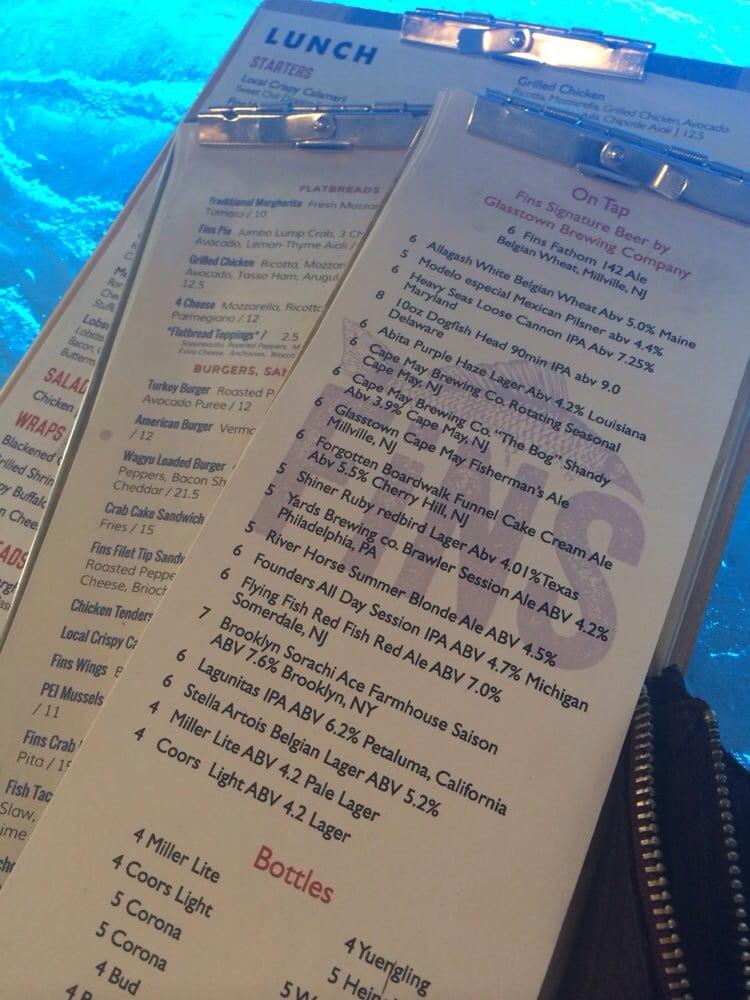 LUNCH
STARTERS
Local Crispy Calamari
Sweet Chili
Grilled Chicken
Ricotta, Mozzarella, Grilled Chicken, Avocado
Chipotle Aioli | 12.5
FLATBREADS
Traditional Margherita Fresh Mozzar
Tomato / 10
Fins Pie Jumbo Lump Crab, 3 Ch
Avocado, Lemon-Thyme Aioli /
Grilled Chicken Ricotta, Mozzar
Avocado, Tasso Ham, Arugul
12.5
4 Cheese Mozzarella, Ricotta
Parmegiano / 12
*Flatbread Toppings* / 2.5
Soppressata, Roasted Peppers, M
Extra Cheese, Anchovies, Brocco
BURGERS, SAN
Turkey Burger Roasted P
Avocado Puree / 12
American Burger Vermo
/ 12
Wagyu Loaded Burger
Peppers, Bacon Sh
Cheddar / 21.5
Crab Cake Sandwich
Fries / 15
Fins Filet Tip Sandw
Roasted Peppe
Cheese, Brioch
Chicken Tenders
Local Crispy Ca
Fins Wings
PEI Mussels
/ 11
Fins Crab
Pita / 15
Fish Tac
Slaw,
ime
SALAD
Chicken
WRAPS
Blackened
rilled Shrin
py Buffalo
n Chee
EADS
On Tap
Fins Signature Beer by
Glasstown Brewing Company
6 Fins Fathom 142 Ale
Belgian Wheat, Millville, NJ
6 Allagash White Belgian Wheat Abv 5.0% Maine
5 Modelo especial Mexican Pilsner abv 4.4%
6 Heavy Seas Loose Cannon IPA Abv 7.25%
Maryland
8 10oz Dogfish Head 90min IPA abv 9.0
Delaware
6 Abita Purple Haze Lager Abv 4.2% Louisiana
6 Cape May Brewing Co. Rotating Seasonal
Cape May, NJ
6 Cape May Brewing Co. "The Bog" Shandy
Abv 3.9% Cape May, NJ
6 Glasstown Cape May Fisherman's Ale
Millville, NJ
6 Forgotten Boardwalk Funnel Cake Cream Ale
Abv 5.5% Cherry Hill, NJ
5 Shiner Ruby redbird Lager Abv 4.01%Texas
5 Yards Brewing co. Brawler Session Ale ABV 4.2%
Philadelphia, PA
5 River Horse Summer Blonde Ale ABV 4.5%
6 Founders All Day Session IPA ABV 4.7% Michigan
6 Flying Fish Red Fish Red Ale ABV 7.0%
Somerdale, NJ
7 Brooklyn Sorachi Ace Farmhouse Saison
ABV 7.6% Brooklyn, NY
6 Lagunitas IPA ABV 6.2% Petaluma, California
6 Stella Artois Belgian Lager ABV 5.2%
4 Miller Lite ABV 4.2 Pale Lager
4 Coors Light ABV 4.2 Lager
FINS
Bottles
4 Miller Lite
4 Coors Light
5 Corona
5 Corona
4 Bud
4 Yuengling
5 Hein